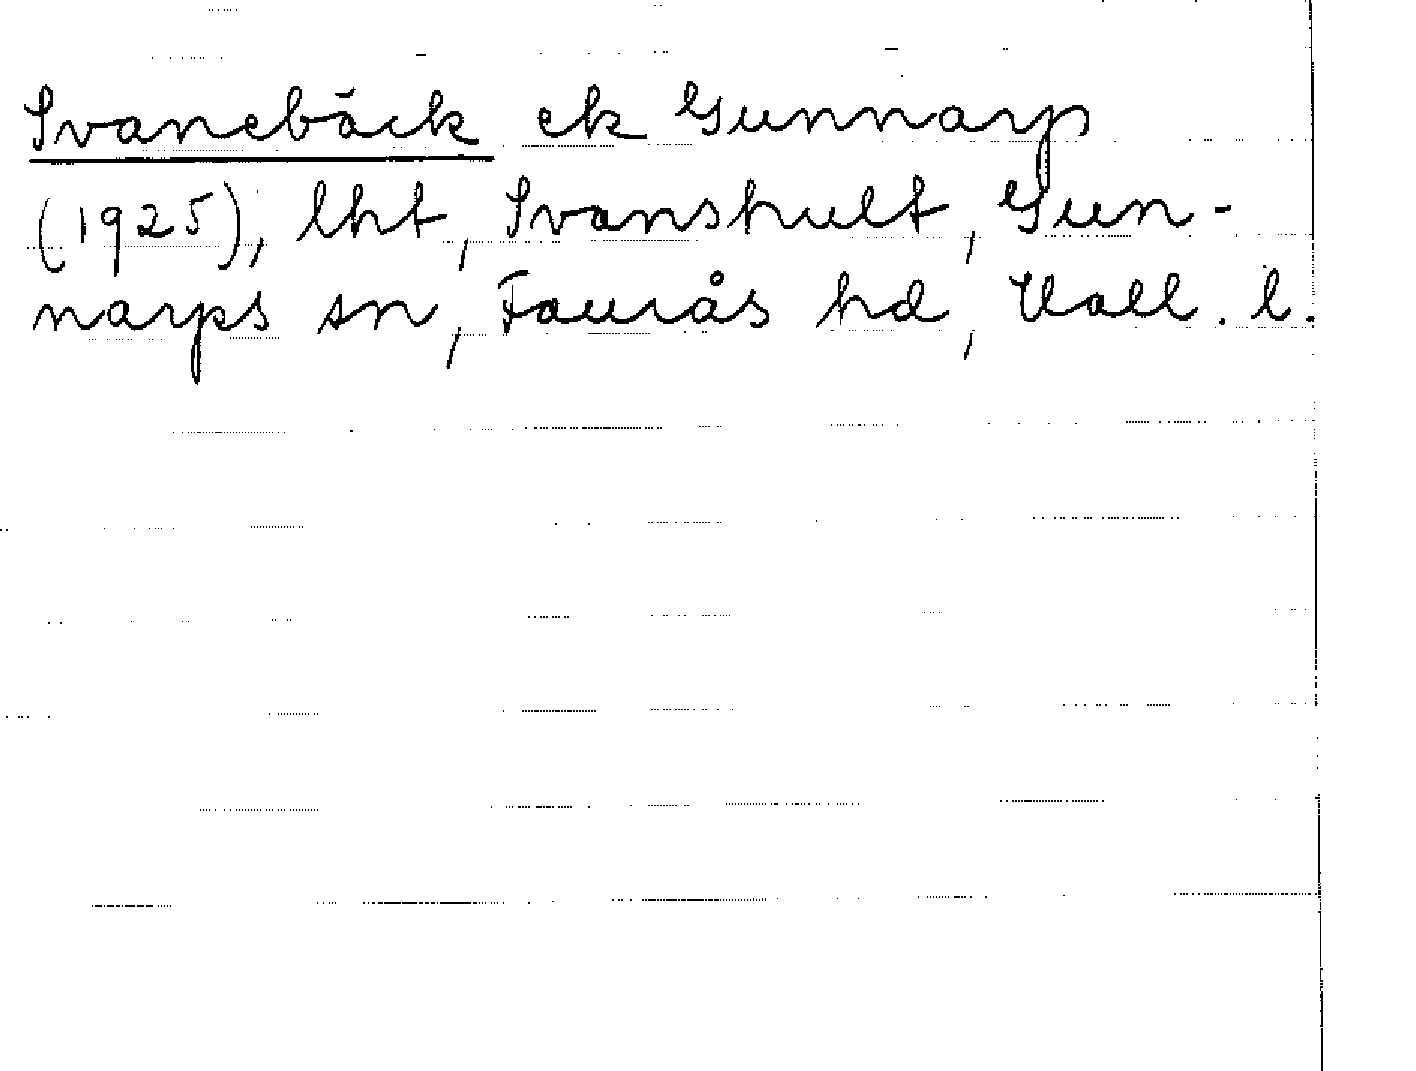 Svanebäck ek Gunnarp
(1925), lht, Svanshult, Gun-
narps sn, Faurås hd, Hall. l.